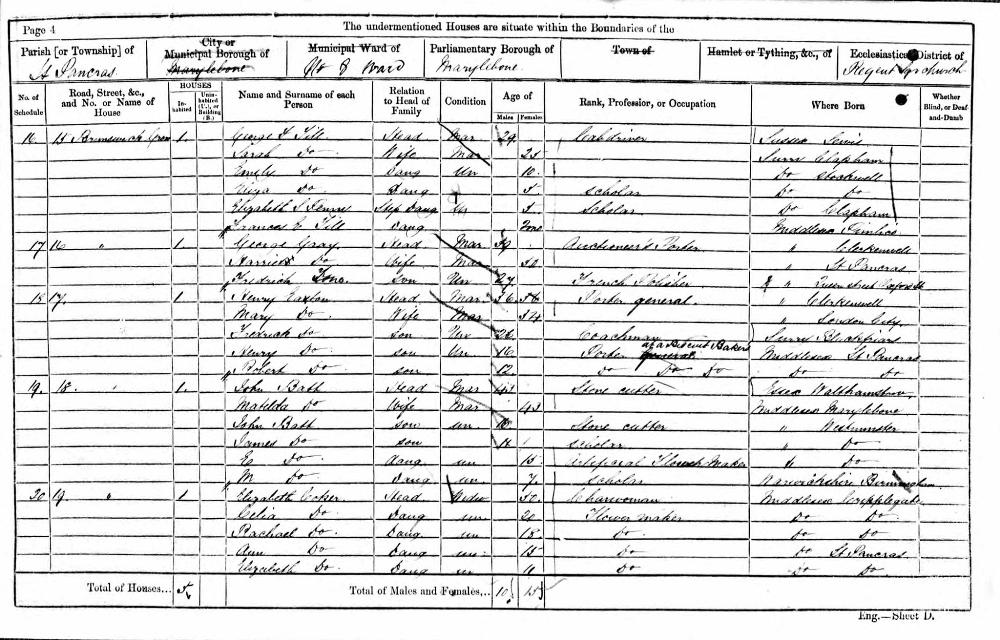 Page 4
The undermentioned Houses are situate within the Boundaries of the
Parish [or Township] of City or Municipal Borough of Municipal Ward of Parliamentary Borough of Town of Hamlet or Tything, &c., of Ecclesiastical District of
St Pancras Marylebone No 8 Ward Marylebone Regent Sqr church
No. of Schedule Road, Street, &c., and No. or Name of House HOUSES Inhabited Uninhabited (U.), or Building (B.) Name and Surname of each Person Relation to Head of Family Condition Age of Males Females Rank, Profession, or Occupation Where Born Whether Blind, or Deaf-and-Dumb
16 15 Brunswick 1 George Till Head Mar 29 Cabdriver Sussex
Sarah Do Wife Mar 25 Surry Clapham
Emily Do Daug Un 10 Do Stockwell
Do Daug 5 Scholar Do Do
Elizabeth Step Daug Un 5 Scholar Do Clapham
Frances E Till Daug Middlesex Pimlico
17 16 " 1 George Gray Head Mar 59 Auctioneers Porter " Clerkenwell
Harriet Do Wife Mar 50 " St Pancras
Fredrick Son Un 27 French Polisher " Street
18 17 1 Henry Head Mar 56 Porter general " Clerkenwell
Mary Do Wife Mar 54 " London City
Fredrick Do Son Un 26 Coachman Surry Blackfriars
Henry Do son Un 16 Porter general at a Biscuit Bakers Middlesex St Pancras
Robert Do son 12 Do Do Do Do Do
19 18 " 1 John Batt Head Mar Stone cutter Essex Walthamstow
Matilda Do Wife Mar 43 Middlesex Marylebone
John Batt Son un Stone cutter " Westminster
James Do son 11 Scholar " Do
E Do daug un 15 Artifical Flower Maker " Do
M Do Daug un 7 Scholar Warwickshire Birmingham
20 19 " 1 Elizabeth Coker Head Widow 50 Charwoman Middlesex Cripplegate
Celia Do Daug un 20 Flower maker Do Do
Rachael Do Daug un 18 Do Do Do
Ann Do Daug un 15 Do Do St Pancras
Elizabeth Do Daug un 11 Do Do Do
Total of Houses... 5 Total of Males and Females... 10 15
Eng.—Sheet D.